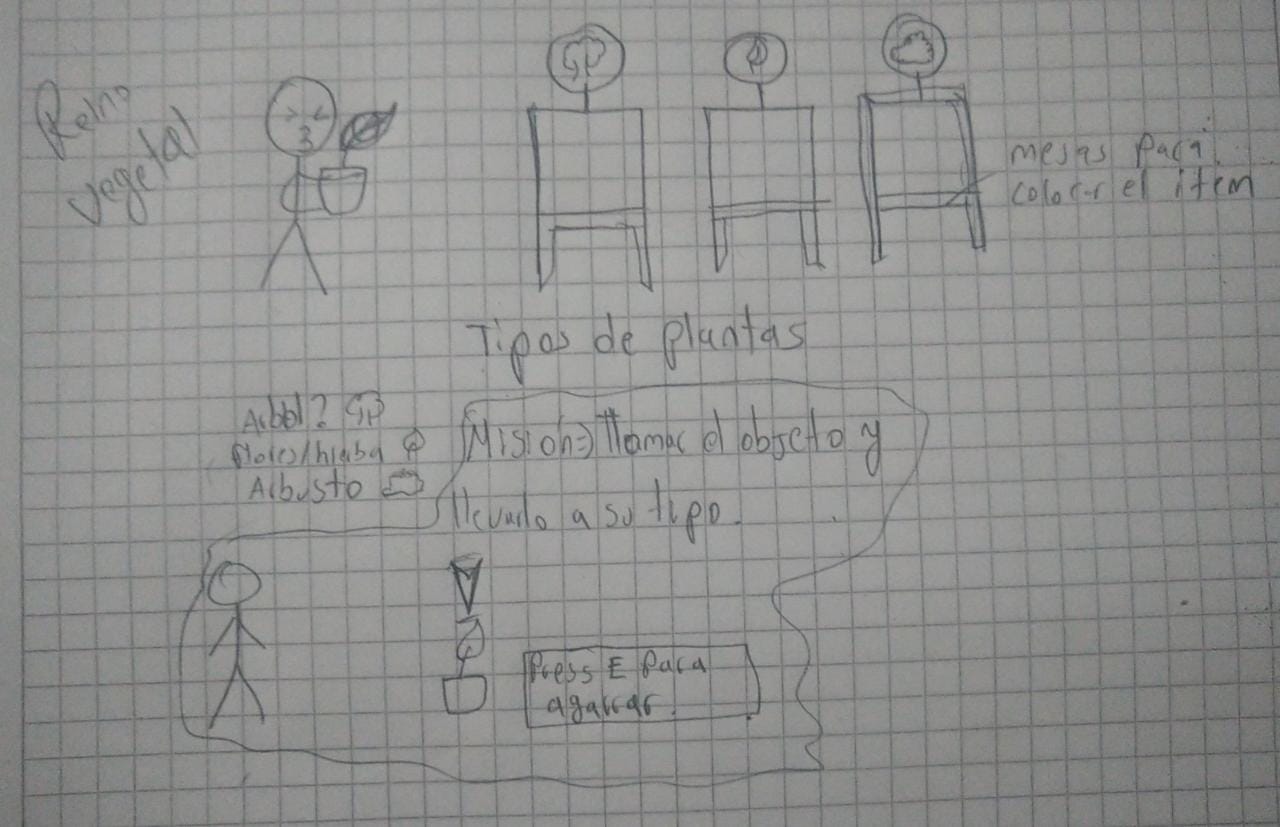 Reino
vegetal
mesas para
colocar el item
Tipos de plantas
Arbol?
flores/hierba
Arbusto
Mision=>
el objecto y
llevarlo a su tipo.
Press E para
agarrar.